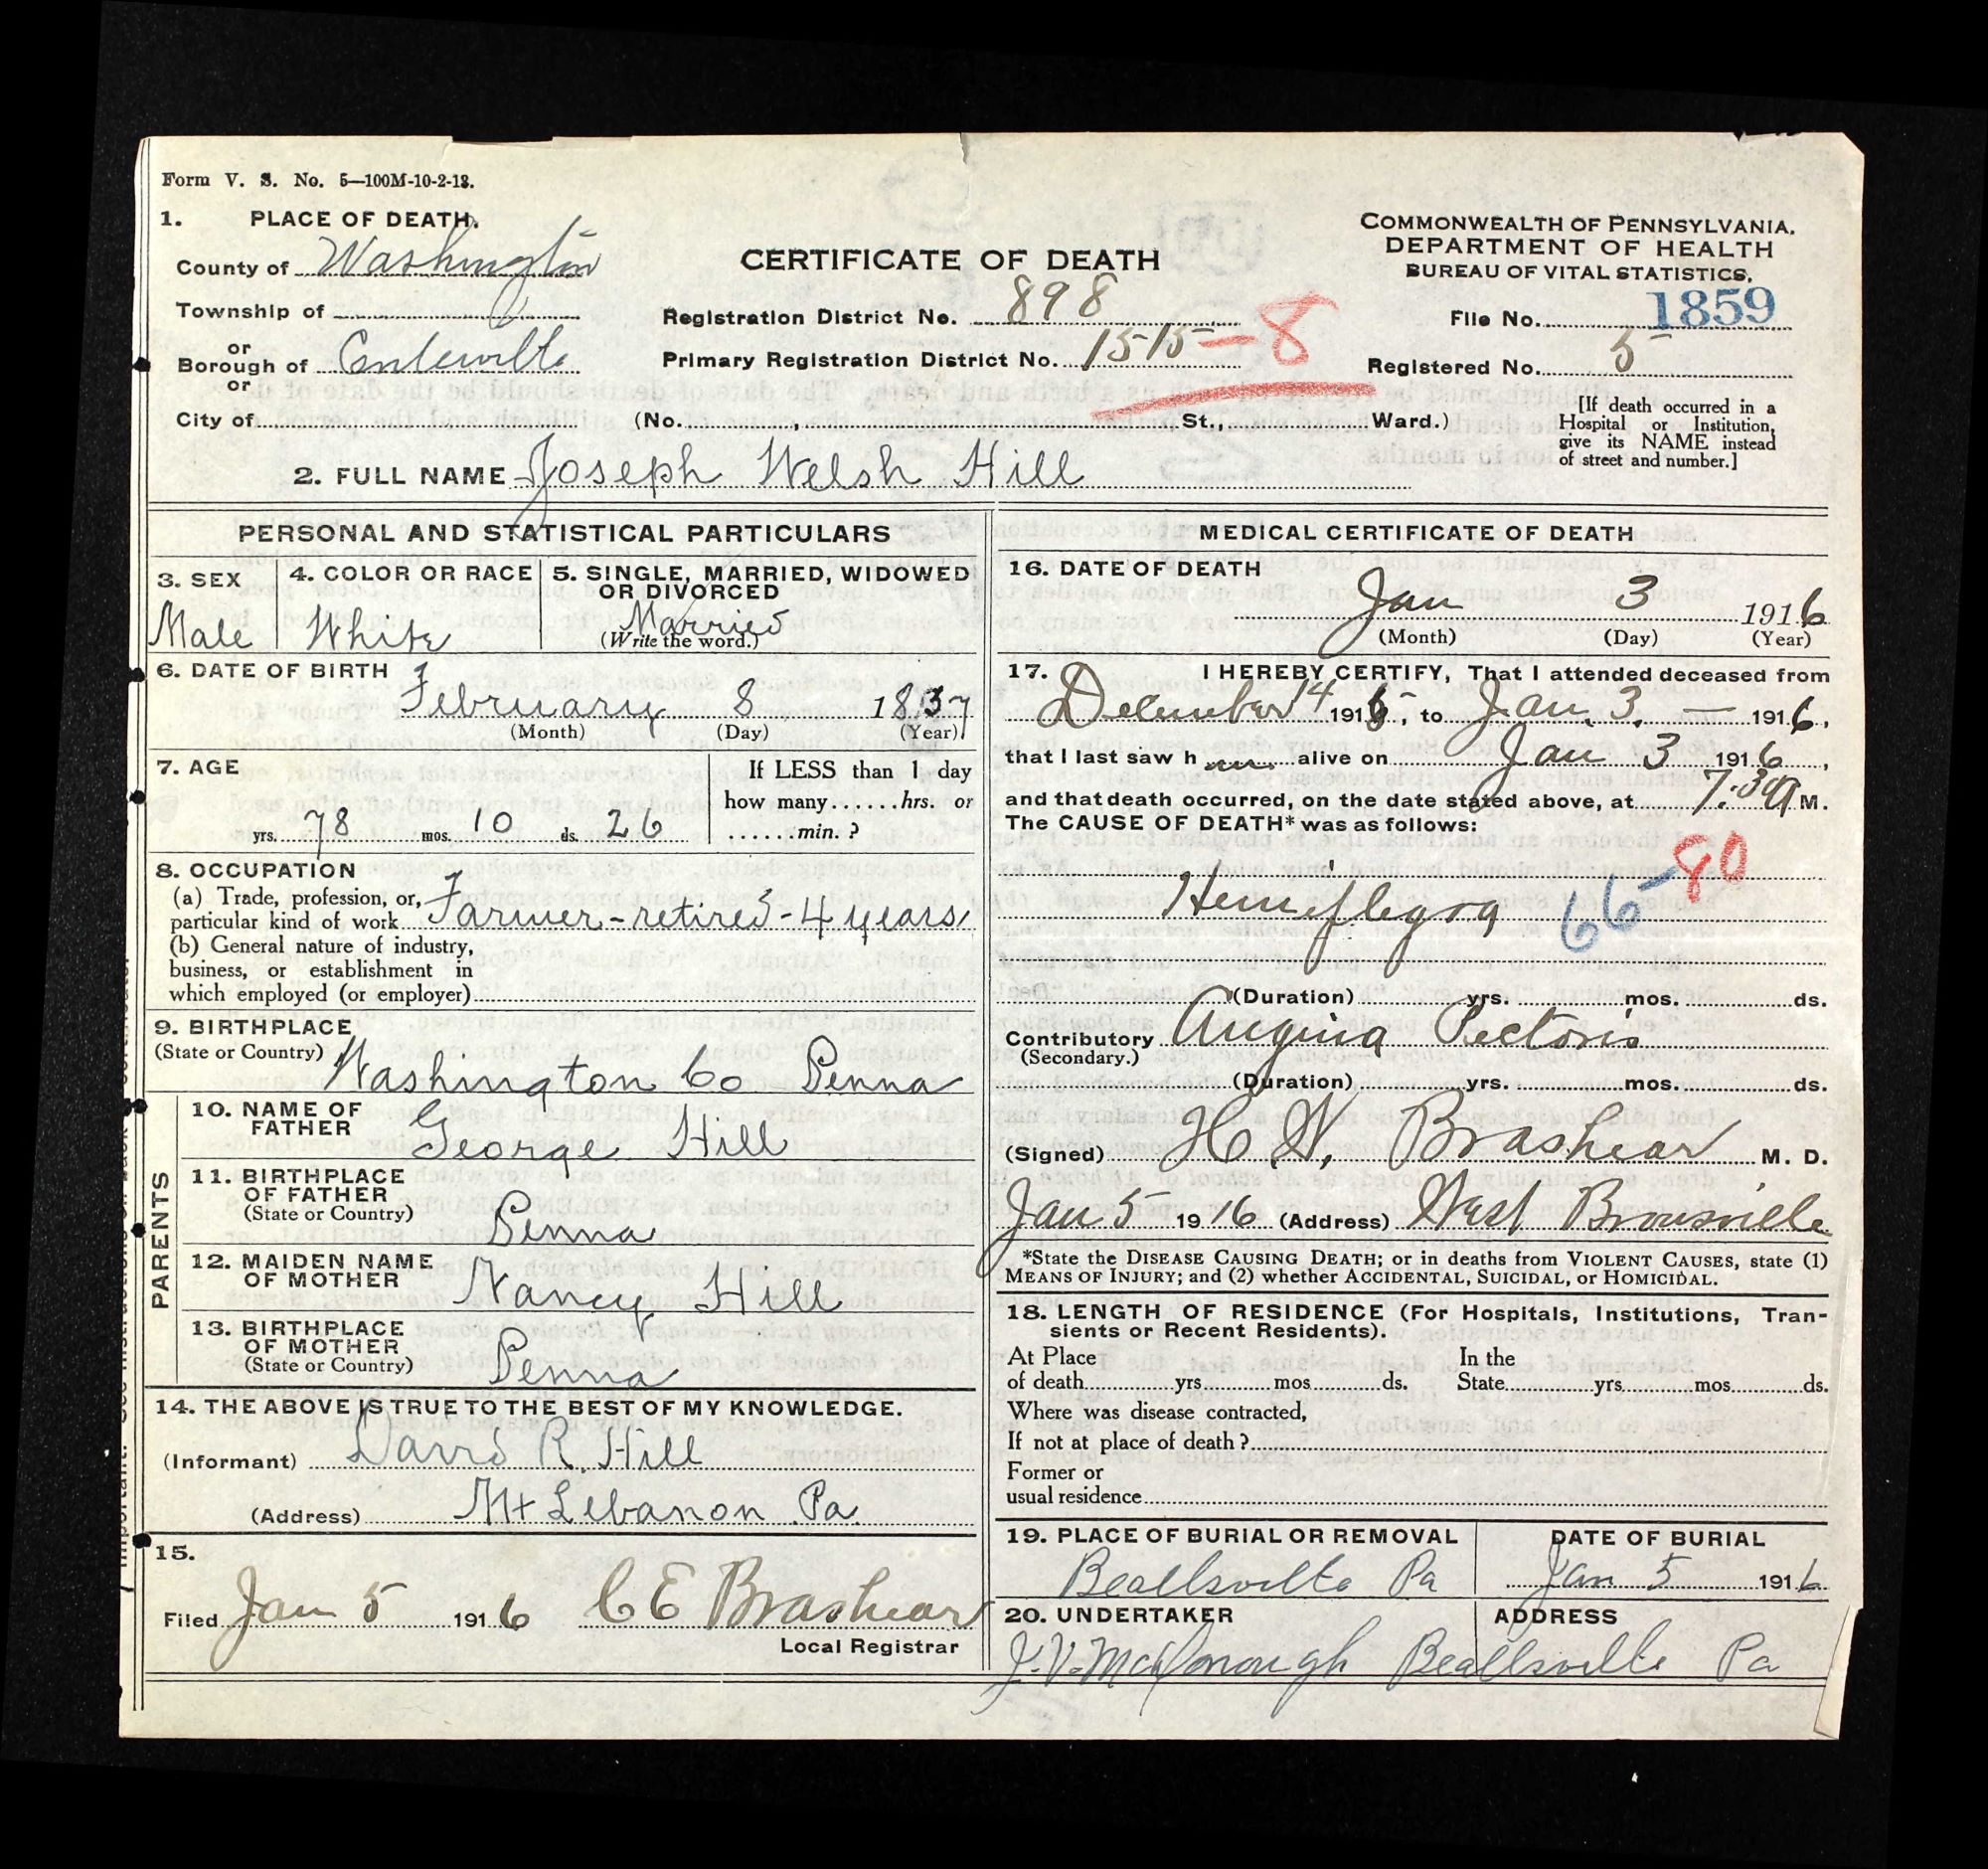 Form V. S. No. 5—100M-10-2-12.
1. PLACE OF DEATH.
County of Washington
Township of
or
Borough of Centerville
or
City of
CERTIFICATE OF DEATH
Registration District No. 898
Primary Registration District No. 1515-8
(No. , St., Ward.)
COMMONWEALTH OF PENNSYLVANIA.
DEPARTMENT OF HEALTH
BUREAU OF VITAL STATISTICS.
File No. 1859
Registered No. 5
[If death occurred in a
Hospital or Institution,
give its NAME instead
of street and number.]
2. FULL NAME Joseph Welsh Hill
PERSONAL AND STATISTICAL PARTICULARS
3. SEX
Male
4. COLOR OR RACE
White
5. SINGLE, MARRIED, WIDOWED
OR DIVORCED
Married
(Write the word.)
6. DATE OF BIRTH
February 8 1837
(Month) (Day) (Year)
7. AGE
yrs. 78 mos. 10 ds. 26
If LESS than 1 day
how many......hrs. or
......min. ?
8. OCCUPATION
(a) Trade, profession, or,
particular kind of work Farmer - retired - 4 years
(b) General nature of industry,
business, or establishment in
which employed (or employer)
9. BIRTHPLACE
(State or Country) Washington Co Penna
PARENTS
10. NAME OF
FATHER George Hill
11. BIRTHPLACE
OF FATHER
(State or Country) Penna
12. MAIDEN NAME
OF MOTHER Nancy Hill
13. BIRTHPLACE
OF MOTHER
(State or Country) Penna
14. THE ABOVE IS TRUE TO THE BEST OF MY KNOWLEDGE.
(Informant) David R. Hill
(Address) Mt Lebanon Pa
15.
Filed Jan 5 1916 C E Brashear
Local Registrar
MEDICAL CERTIFICATE OF DEATH
16. DATE OF DEATH
Jan 3 1916
(Month) (Day) (Year)
17. I HEREBY CERTIFY, That I attended deceased from
December 14 1915, to Jan. 3. — 1916,
that I last saw him alive on Jan 3 1916,
and that death occurred, on the date stated above, at 7:30 A M.
The CAUSE OF DEATH* was as follows:
80
Hemeflegra 66
(Duration) yrs. mos. ds.
Contributory Angina Pectoris
(Secondary.)
(Duration) yrs. mos. ds.
(Signed) H. W. Brashear M. D.
Jan 5 1916 (Address) West Brownsville
*State the DISEASE CAUSING DEATH; or in deaths from VIOLENT CAUSES, state (1)
MEANS OF INJURY; and (2) whether ACCIDENTAL, SUICIDAL, or HOMICIDAL.
18. LENGTH OF RESIDENCE (For Hospitals, Institutions, Tran-
sients or Recent Residents).
At Place In the
of death yrs mos ds. State yrs mos ds.
Where was disease contracted,
If not at place of death?
Former or
usual residence
19. PLACE OF BURIAL OR REMOVAL
Beallsville Pa
DATE OF BURIAL
Jan 5 1916
20. UNDERTAKER ADDRESS
J. V. McDonough Beallsville Pa